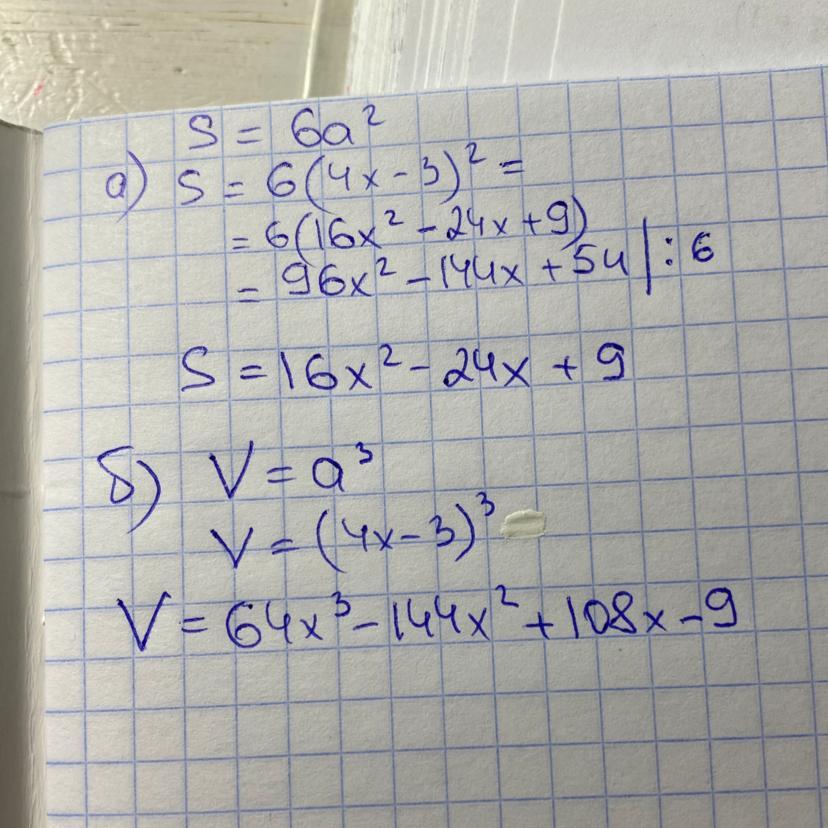 S = 6a²
а) S = 6(4x - 3)² =
= 6(16x² - 24x + 9)
= 96x² - 144x + 54 | : 6
S = 16x² - 24x + 9
б) V = a³
V = (4x - 3)³
V = 64x³ - 144x² + 108x - 9